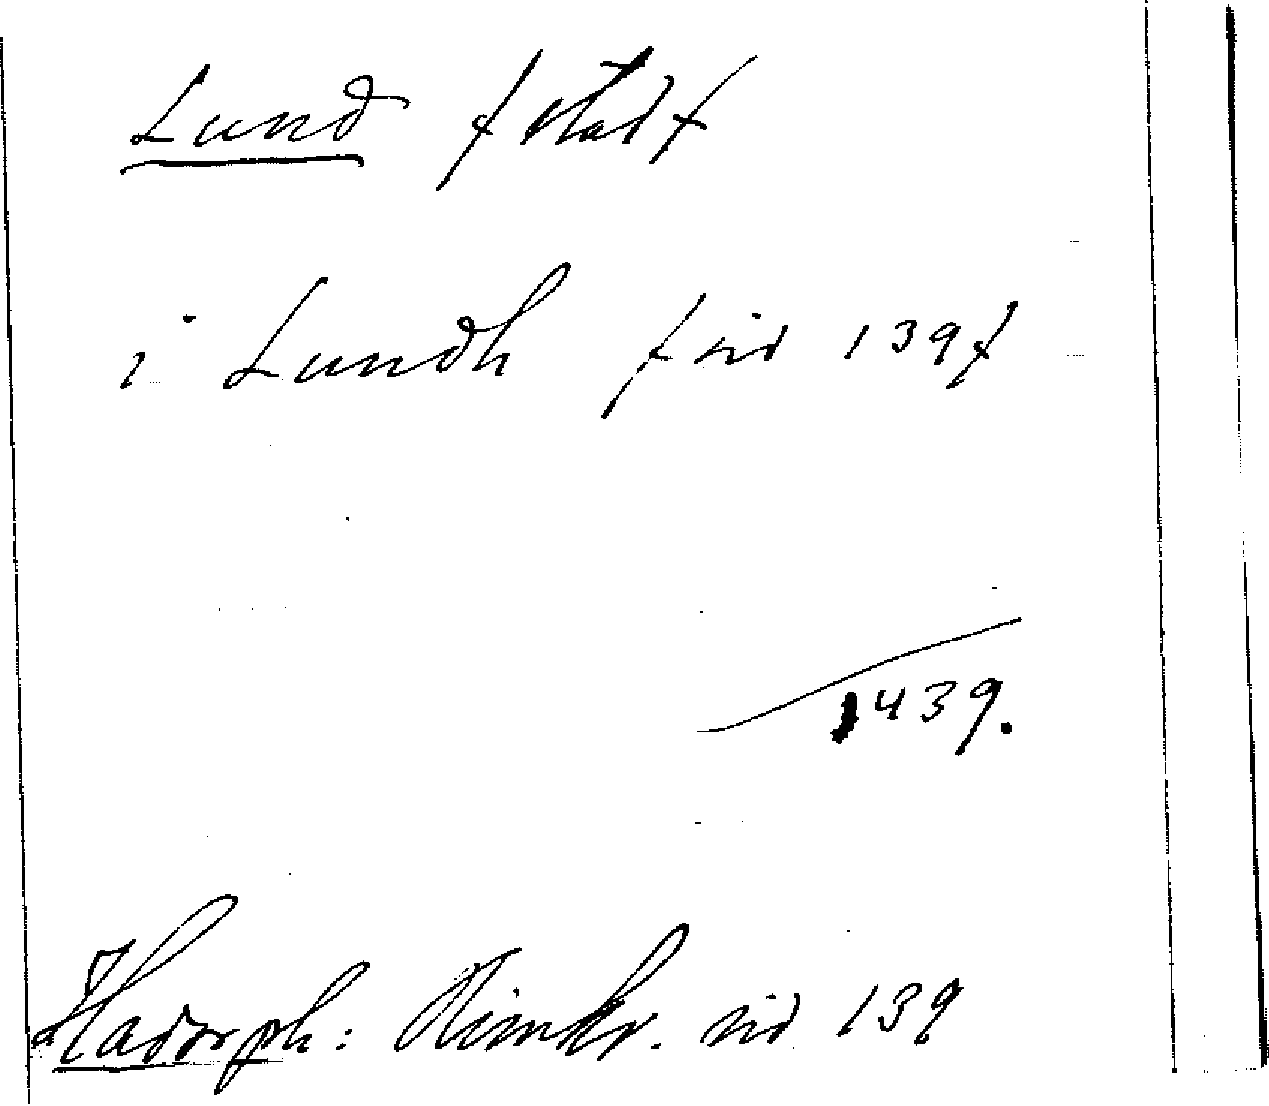 Lund /stad/
i Lundh /sid 139/
1439.
Hadorph: Rimkr. sid 139